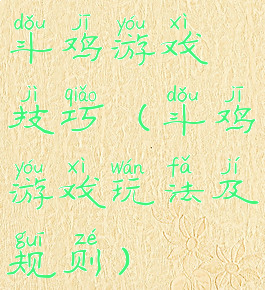 dǒu jī yóu xì
斗鸡游戏
jì qiǎo dǒu jī
技巧（斗鸡
yóu xì wán fǎ jí
游戏玩法及
guī zé
规则）